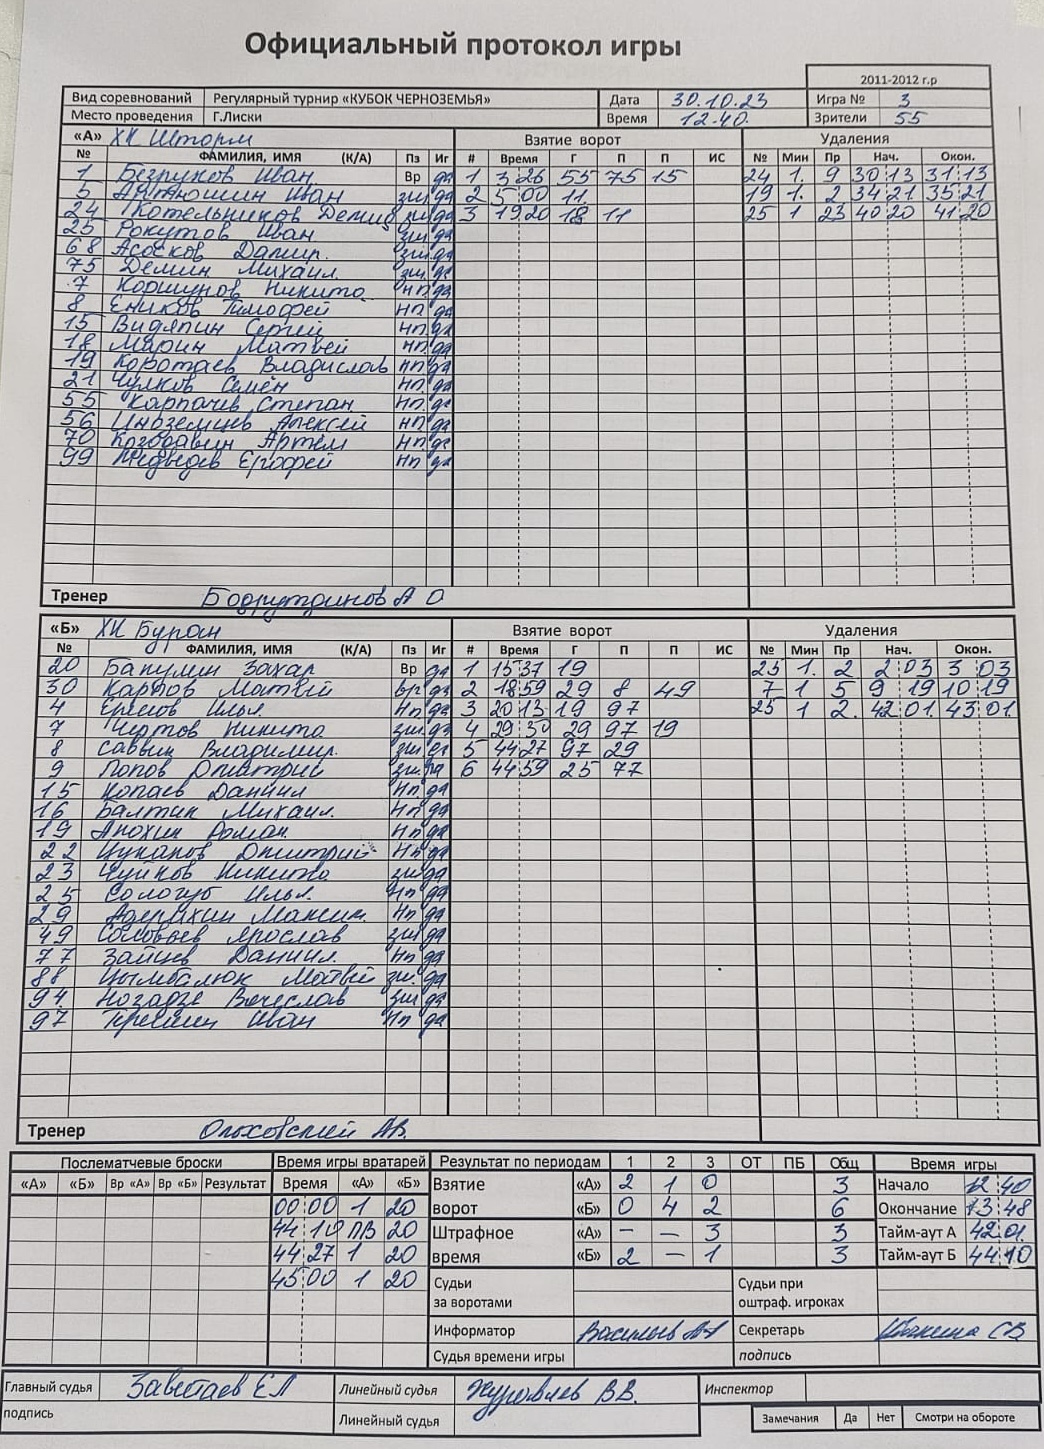 Официальный протокол игры
2011-2012 г.р
Вид соревнований Регулярный турнир «КУБОК ЧЕРНОЗЕМЬЯ» Дата 30.10.23 Игра № 3
Место проведения Г.Лиски Время 12.40. Зрители 55
«А» ХК Шторм Взятие ворот Удаления
№ ФАМИЛИЯ, ИМЯ (К/А) Пз Иг # Время Г П П ИС № Мин Пр Нач. Окон.
1 Безруков Иван Вр да 1 3 26 55 75 15 24 1. 9 30 13 31 13
5 Артюшин Иван зщ да 2 5 00 11. 19 1. 2 34 21 35 21
24 Котельников Демид зщ да 3 19 20 18 11 25 1 23 40 20 41 20
25 Рокутов Иван зщ да
68 Асосков Дамир. зщ да
75 Демин Михаил. зщ да
7 Коршунов Никита нп да
8 Еников Тимофей нп да
15 Видяпин Сергей нп да
18 Марин Матвей нп да
19 Коротаев Владислав нп да
21 Чулков Семён нп да
55 Карпачев Степан нп да
56 Иноземцев Алексей нп да
70 Козодавин Артём нп да
99 Медведев Ерофей нп да
Тренер Бадрутдинов А О
«Б» ХК Буран Взятие ворот Удаления
№ ФАМИЛИЯ, ИМЯ (К/А) Пз Иг # Время Г П П ИС № Мин Пр Нач. Окон.
20 Бакулин Захар Вр да 1 15 37 19 25 1. 2 2 03 3 03
30 Карпов Матвей вр да 2 18 59 29 8 49 7 1 5 9 19 10 19
4 Илья. Нп да 3 20 13 19 97 25 1 2. 42 01. 43 01.
7 Чертов Никита зщ да 4 29 30 29 97 19
8 Саввин Владимир. зщ да 5 44 27 97 29
9 Попов Дмитрий зщ да 6 44 59 25 77
15 Копаев Даниил Нп да
16 Балтик Михаил. Нп да
19 Анохин Роман Нп да
22 Цуканов Дмитрий Нп да
23 Чуйков Никита зщ да
25 Сологуб Илья. Нп да
29 Адерихин Максим. Нп да
49 Соловьев Ярослав зщ да
77 Зайцев Даниил. Нп да
88 Цымбалюк Матвей зщ. да
94 Нозадзе Вячеслав зщ да
97 Иван Нп да
Тренер Ольховский АВ.
Послематчевые броски Время игры вратарей Результат по периодам 1 2 3 ОТ ПБ Общ Время игры
«А» «Б» Вр «А» Вр «Б» Результат Время «А» «Б» Взятие «А» 2 1 0 3 Начало 12 40
00 00 1 20 ворот «Б» 0 4 2 6 Окончание 13 48
44 10 ПВ 20 Штрафное «А» – – 3 3 Тайм-аут А 42 01.
44 27 1 20 время «Б» 2 – 1 3 Тайм-аут Б 44 10
45 00 1 20 Судьи за воротами Судьи при оштраф. игроках
Информатор Васильев Секретарь СВ
Судья времени игры подпись
Главный судья Заветаев ЕЛ Линейный судья Журавлев ВВ. Инспектор
подпись Линейный судья Замечания Да Нет Смотри на обороте